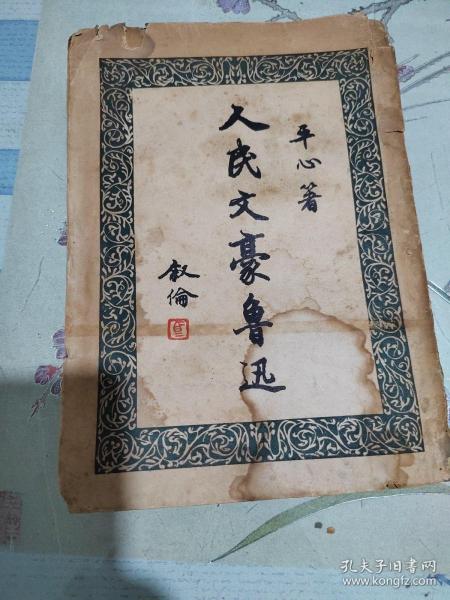 平心著
人民文豪魯迅
叙倫
孔夫子旧书网
www.kongfz.com